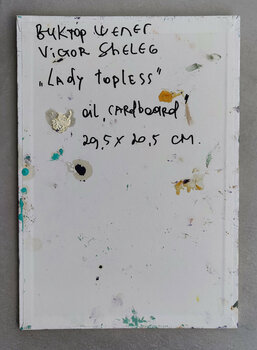 Виктор Шелег
Victor Sheleg
„Lady topless"
oil, cardboard
29,5 x 20,5 cm.